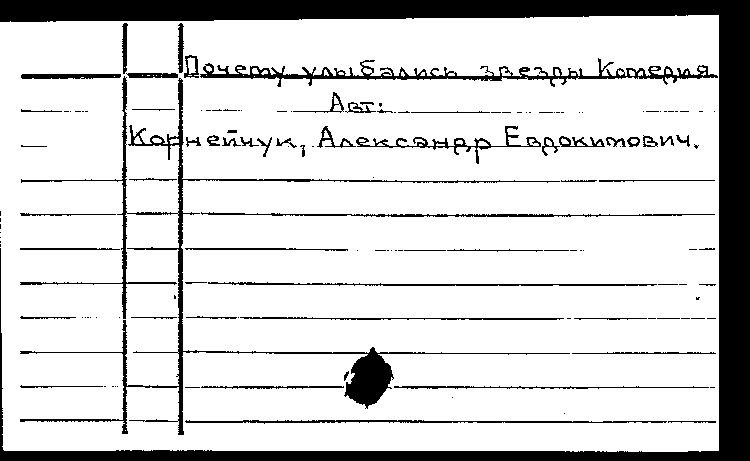 Почему улыбались звезды Комедия.
Авт:
Корнейчук, Александр Евдокимович.